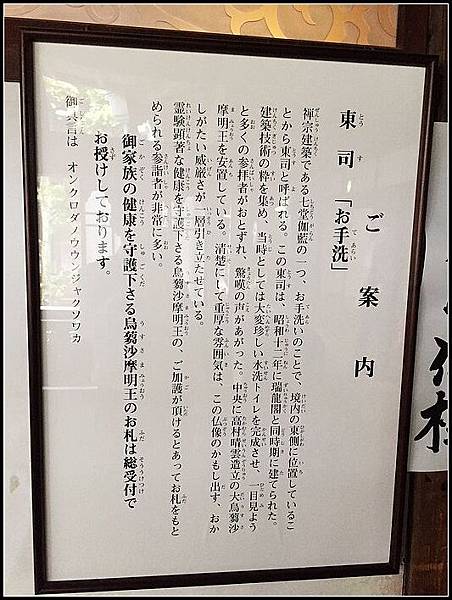 ご案内
東司「お手洗」
禅宗建築である七堂伽藍の一つ、お手洗いのことで、境内の東側に位置しているこ
とから東司と呼ばれる。この東司は、昭和十二年に瑞龍閣と同時期に建てられた。
建築技術の粋を集め、当時としては大変珍しい水洗トイレを完成させ、一目見よう
と多くの参拝者がおとずれ、驚嘆の声があがった。中央に高村晴雲造立の大烏蒭沙
摩明王を安置している。清楚にして重厚な雰囲気は、この仏像のかもし出す、おか
しがたい威厳さが一層引き立たせている。
霊験顕著な健康を守護下さる烏蒭沙摩明王の、ご加護が頂けるとあってお札をもと
められる参詣者が非常に多い。
御家族の健康を守護下さる烏蒭沙摩明王のお札は総受付で
お授けしております。
御真言は オンクロダノウウンジャクソワカ